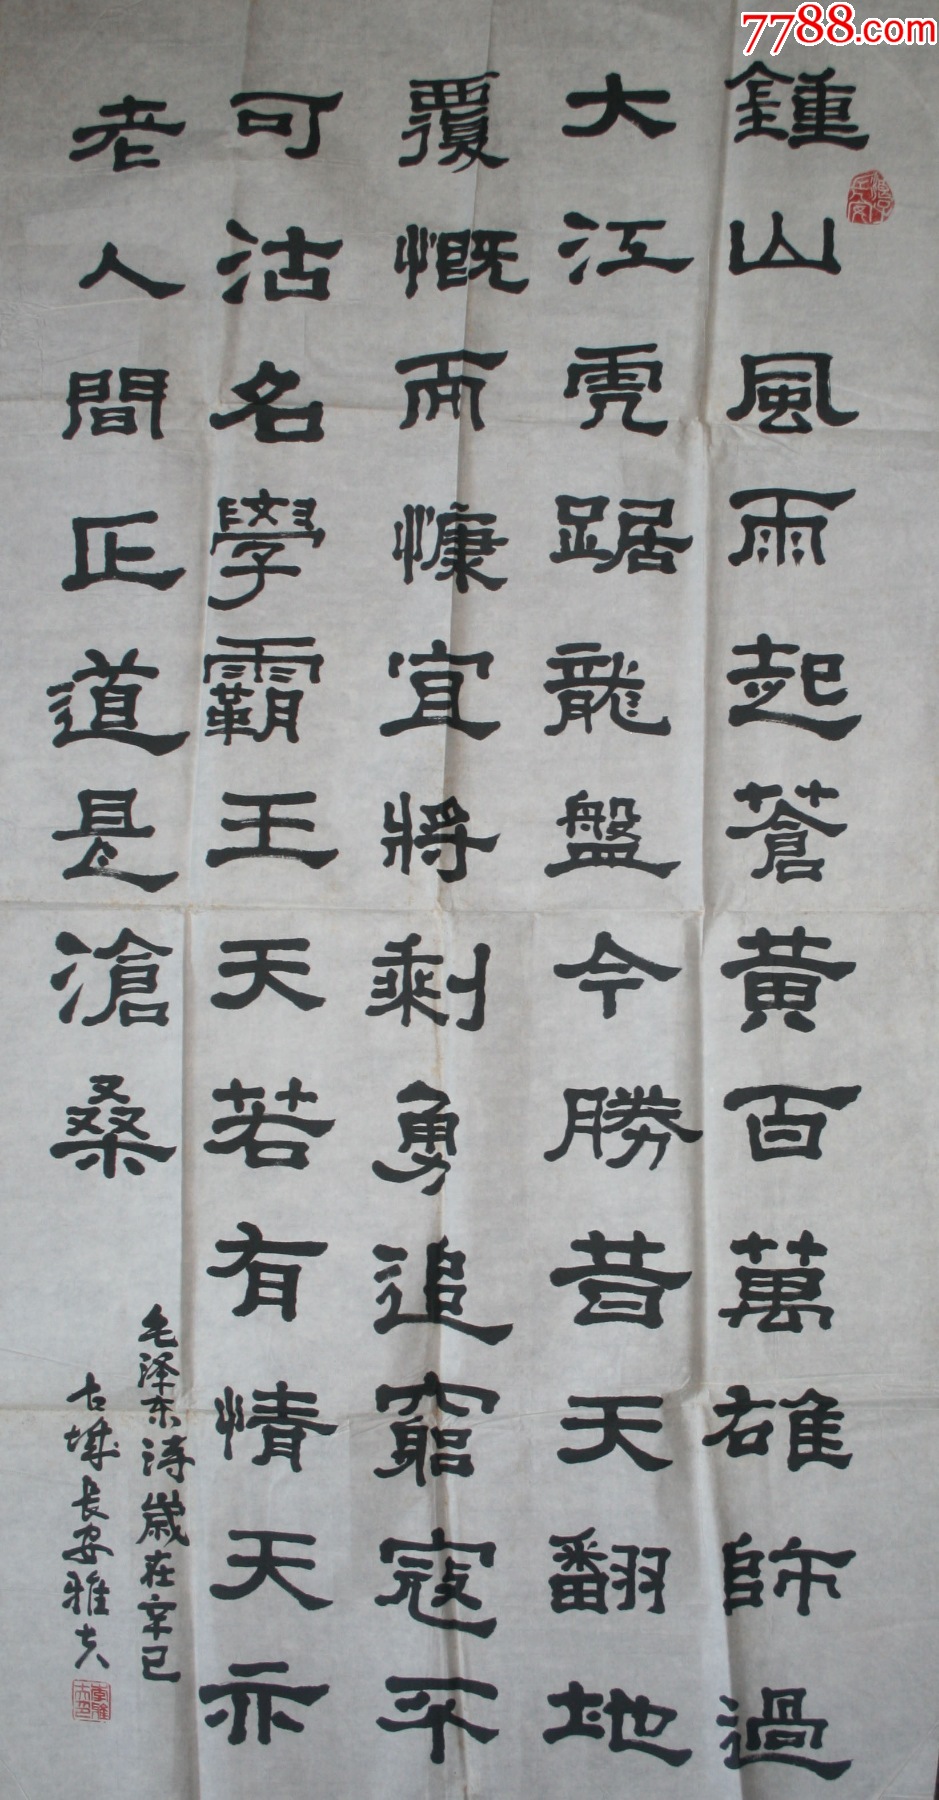 鍾山風雨起蒼黃百萬雄師過
大江虎踞龍盤今勝昔天翻地
覆慨而慷宜將剩勇追窮寇不
可沽名學霸王天若有情天亦
老人間正道是滄桑
毛泽东诗歲在辛巳
古城長安雅夫
7788.com